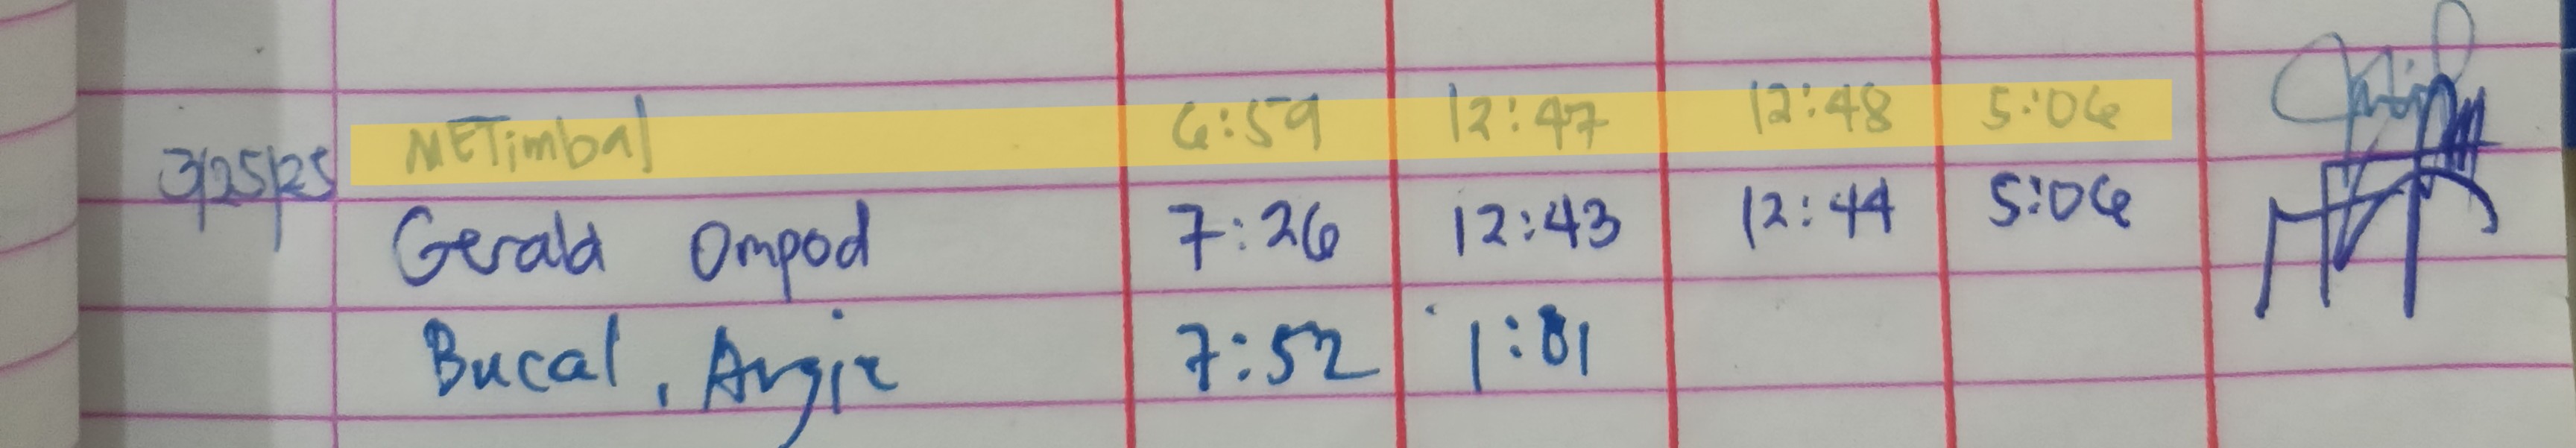 3/25/25 METimbal 6:59 12:47 12:48 5:06
Gerald Ompod 7:26 12:43 12:44 5:06
Bucal, Angie 7:52 1:01